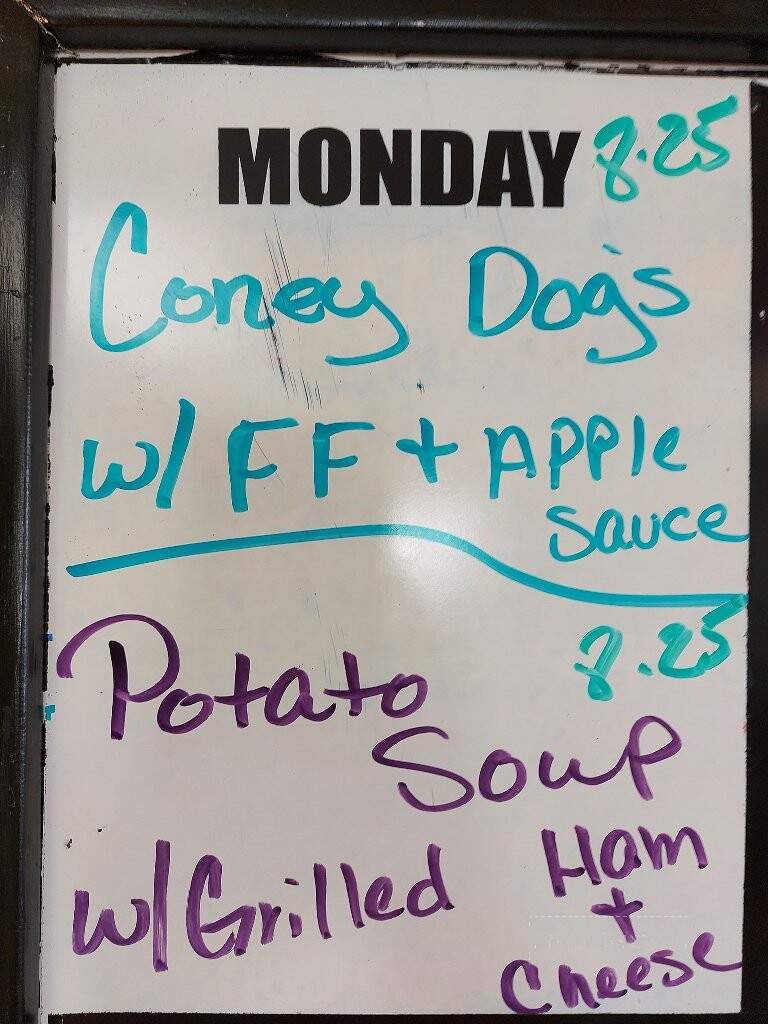 MONDAY 8.25
Coney Dog's
w/ FF + Apple
sauce
8.25
Potato
Soup
w/Grilled Ham
+
Cheese